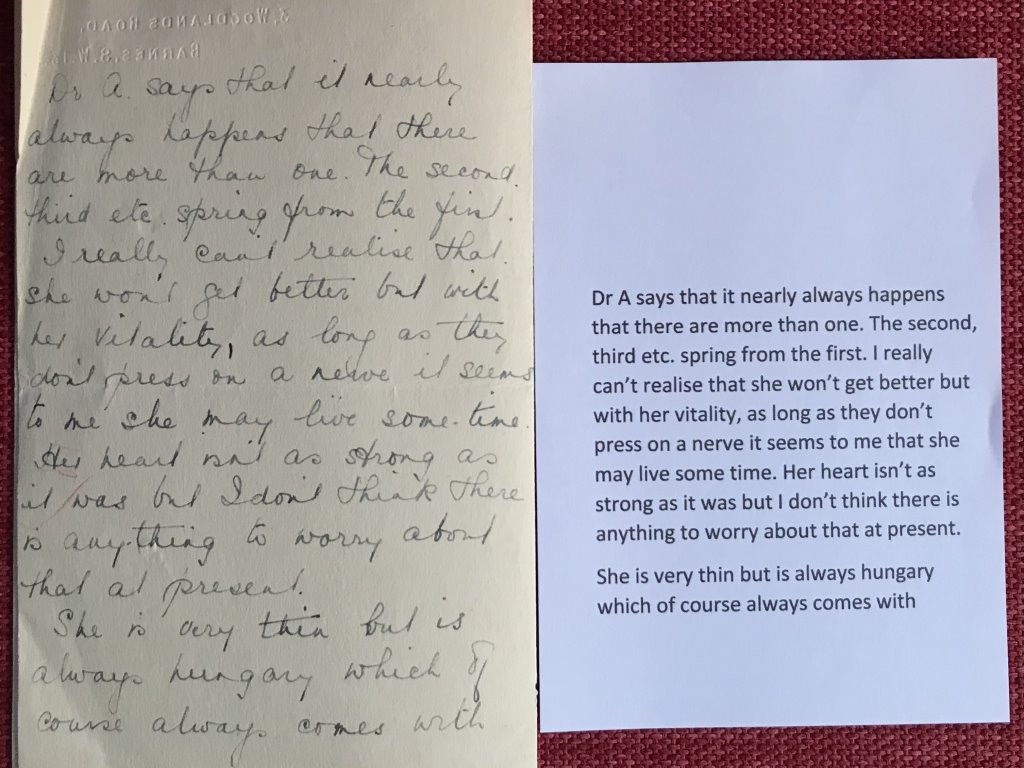 3, WOODLANDS ROAD,
BARNES, S.W.
Dr A. says that it nearly
always happens that there
are more than one. The second.
third etc. spring from the first.
I really can't realise that.
she won't get better but with
her vitality, as long as they
don't press on a nerve it seems
to me she may live some-time.
Her heart isn't as strong as
it was but I don't think there
is anything to worry about
that at present.
She is very thin but is
always hungary which of
course always comes with
Dr A says that it nearly always happens
that there are more than one. The second,
third etc. spring from the first. I really
can't realise that she won't get better but
with her vitality, as long as they don't
press on a nerve it seems to me that she
may live some time. Her heart isn't as
strong as it was but I don't think there is
anything to worry about that at present.
She is very thin but is always hungary
which of course always comes with